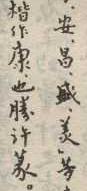 、安、昌、盛、美、等
楷作康也勝許篆。